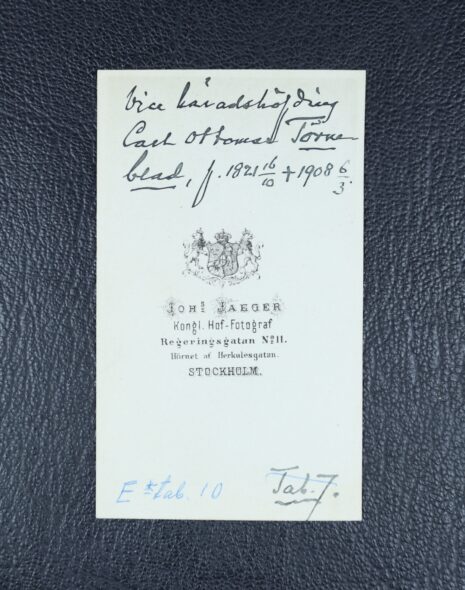 Vice häradshöfding
Carl Ottomar Törne
blad, f. 1821 16/10 + 1908 6/3.
JOHS JAEGER
Kongl. Hof-Fotograf
Regeringsgatan No 11.
Hörnet af Herkulesgatan.
STOCKHOLM.
tab. 10
Tab. 7.